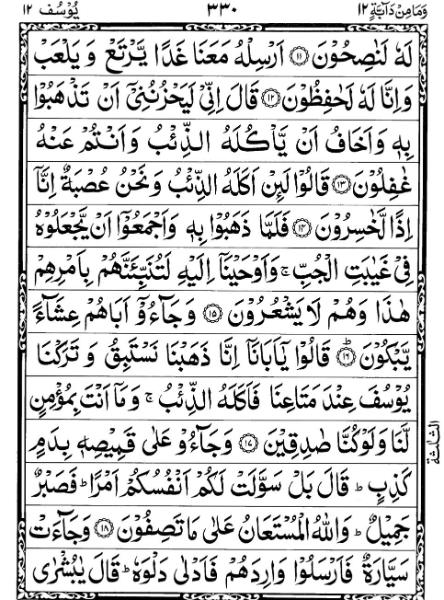 وَمَا مِنْ دَآبَّةٍ ١٢ ٣٣٠ يُوْسُف ١٢
لَهٗ لَنٰصِحُوْنَ ۝١١ اَرْسِلْهُ مَعَنَا غَدًا يَّرْتَعْ وَ يَلْعَبْ
وَاِنَّا لَهٗ لَحٰفِظُوْنَ ۝١٢ قَالَ اِنِّىْ لَيَحْزُنُنِىْٓ اَنْ تَذْهَبُوْا
بِهٖ وَ اَخَافُ اَنْ يَّاْكُلَهُ الذِّئْبُ وَ اَنْتُمْ عَنْهُ
غٰفِلُوْنَ ۝١٣ قَالُوْا لَئِنْ اَكَلَهُ الذِّئْبُ وَ نَحْنُ عُصْبَةٌ اِنَّاۤ
اِذًا لَّخٰسِرُوْنَ ۝١٤ فَلَمَّا ذَهَبُوْا بِهٖ وَ اَجْمَعُوْۤا اَنْ يَّجْعَلُوْهُ
فِىْ غَيٰبَتِ الْجُبِّ ۚ وَ اَوْحَيْنَاۤ اِلَيْهِ لَتُنَبِّئَنَّهُمْ بِاَمْرِهِمْ
هٰذَا وَ هُمْ لَا يَشْعُرُوْنَ ۝١٥ وَ جَآءُوْۤ اَبَاهُمْ عِشَآءً
يَّبْكُوْنَ ۝١٦ قَالُوْا يٰۤاَبَانَاۤ اِنَّا ذَهَبْنَا نَسْتَبِقُ وَ تَرَكْنَا
يُوْسُفَ عِنْدَ مَتَاعِنَا فَاَكَلَهُ الذِّئْبُ ۚ وَ مَاۤ اَنْتَ بِمُؤْمِنٍ
لَّنَا وَ لَوْ كُنَّا صٰدِقِيْنَ ۝١٧ وَ جَآءُوْ عَلٰى قَمِيْصِهٖ بِدَمٍ
كَذِبٍ ؕ قَالَ بَلْ سَوَّلَتْ لَكُمْ اَنْفُسُكُمْ اَمْرًا ؕ فَصَبْرٌ
جَمِيْلٌ ؕ وَ اللّٰهُ الْمُسْتَعَانُ عَلٰى مَا تَصِفُوْنَ ۝١٨ وَ جَآءَتْ
سَيَّارَةٌ فَاَرْسَلُوْا وَارِدَهُمْ فَاَدْلٰى دَلْوَهٗ ؕ قَالَ يٰبُشْرٰى
الثلثة